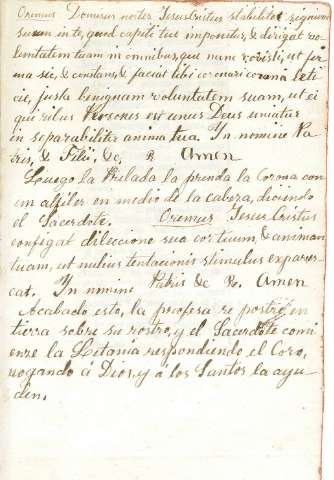 Oremus Dominus noster Jesus Cristus stabiliat signum
suum in te, quod capiti tuo imponitur, & dirigat vo
luntatem tuam in omnibus, que nunc ut fir
ma sie, & constans, & faciat tibi coronari corona leti
cie, justa benignam voluntatem suam, ut ei
qui Persones est unus Deus uniatur
in separabiliter anima tua. In nomine Pa
tris, & Filii, &c, R. Amen
Luego la Prelada la prenda la Corona con
un alfiler en medio de la cabeza, diciendo
el Sacerdote. Oremus Jesus Cristus
confegat dileccione sua cor tuum, & animan
tuam, ut nulius tentacionis stimulus expares
cat. In nomine Patris &c R. Amen
Acabado esto, la profesa se postre en
tierra sobre su rostro, y el Sacerdote comi
enre la Letania respondiendo el Coro,
rogando á Dios, y á los Santos la ayu
den.